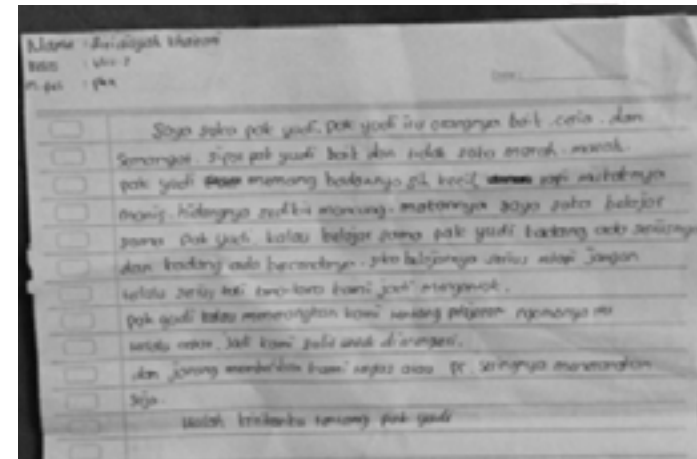 Nama :
Kelas : VIII-
M. pel : pkn
Saya suka pak yudi. Pak yudi itu orangnya baik, ceria, dan
Semangat. sifat pak yudi baik dan tidak suka marah-marah.
pak yudi memang badannya sih kecil tapi mukanya
manis, hidungnya sedikit mancung. makannya saya suka belajar
sama Pak yudi. kalau belajar sama pak yudi kadang ada seriusnya
dan kadang ada bercandanya. belajarnya serius tetapi jangan
terlalu serius kami jadi mengantuk.
pak yudi kalau menerangkan kami tentang pelajaran ngomongnya
selalu jadi kami
dan jarang memberikan kami tugas atau pr. seringnya menerangkan
saja.
tentang pak yudi